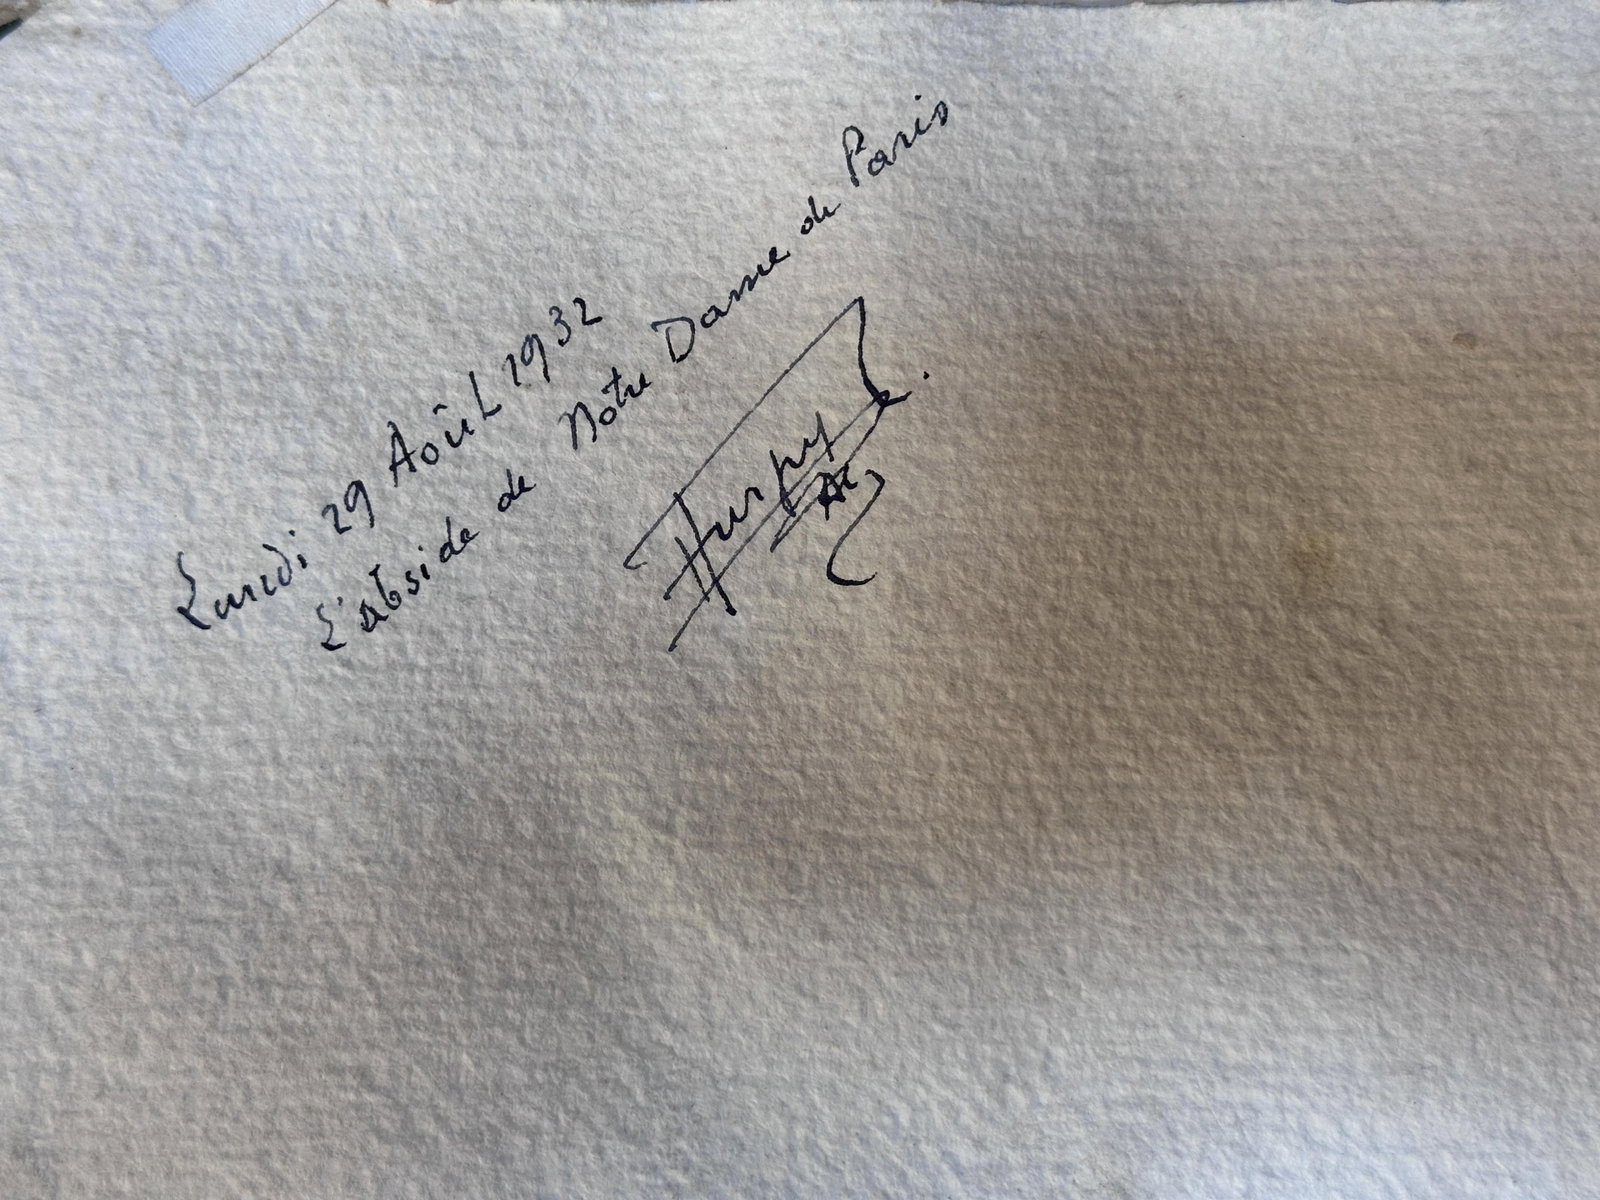 Lundi 29 Août 1932
L'abside de Notre Dame de Paris